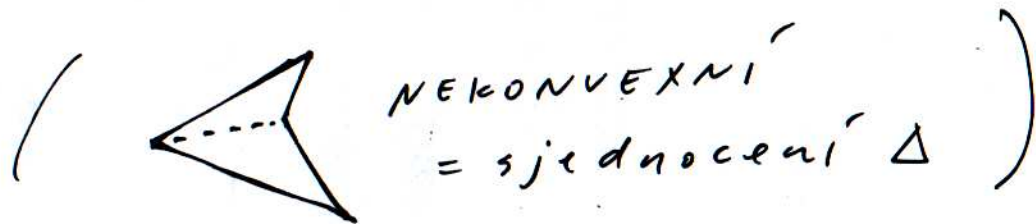 ( NEKONVEXNÍ
= sjednocení Δ )